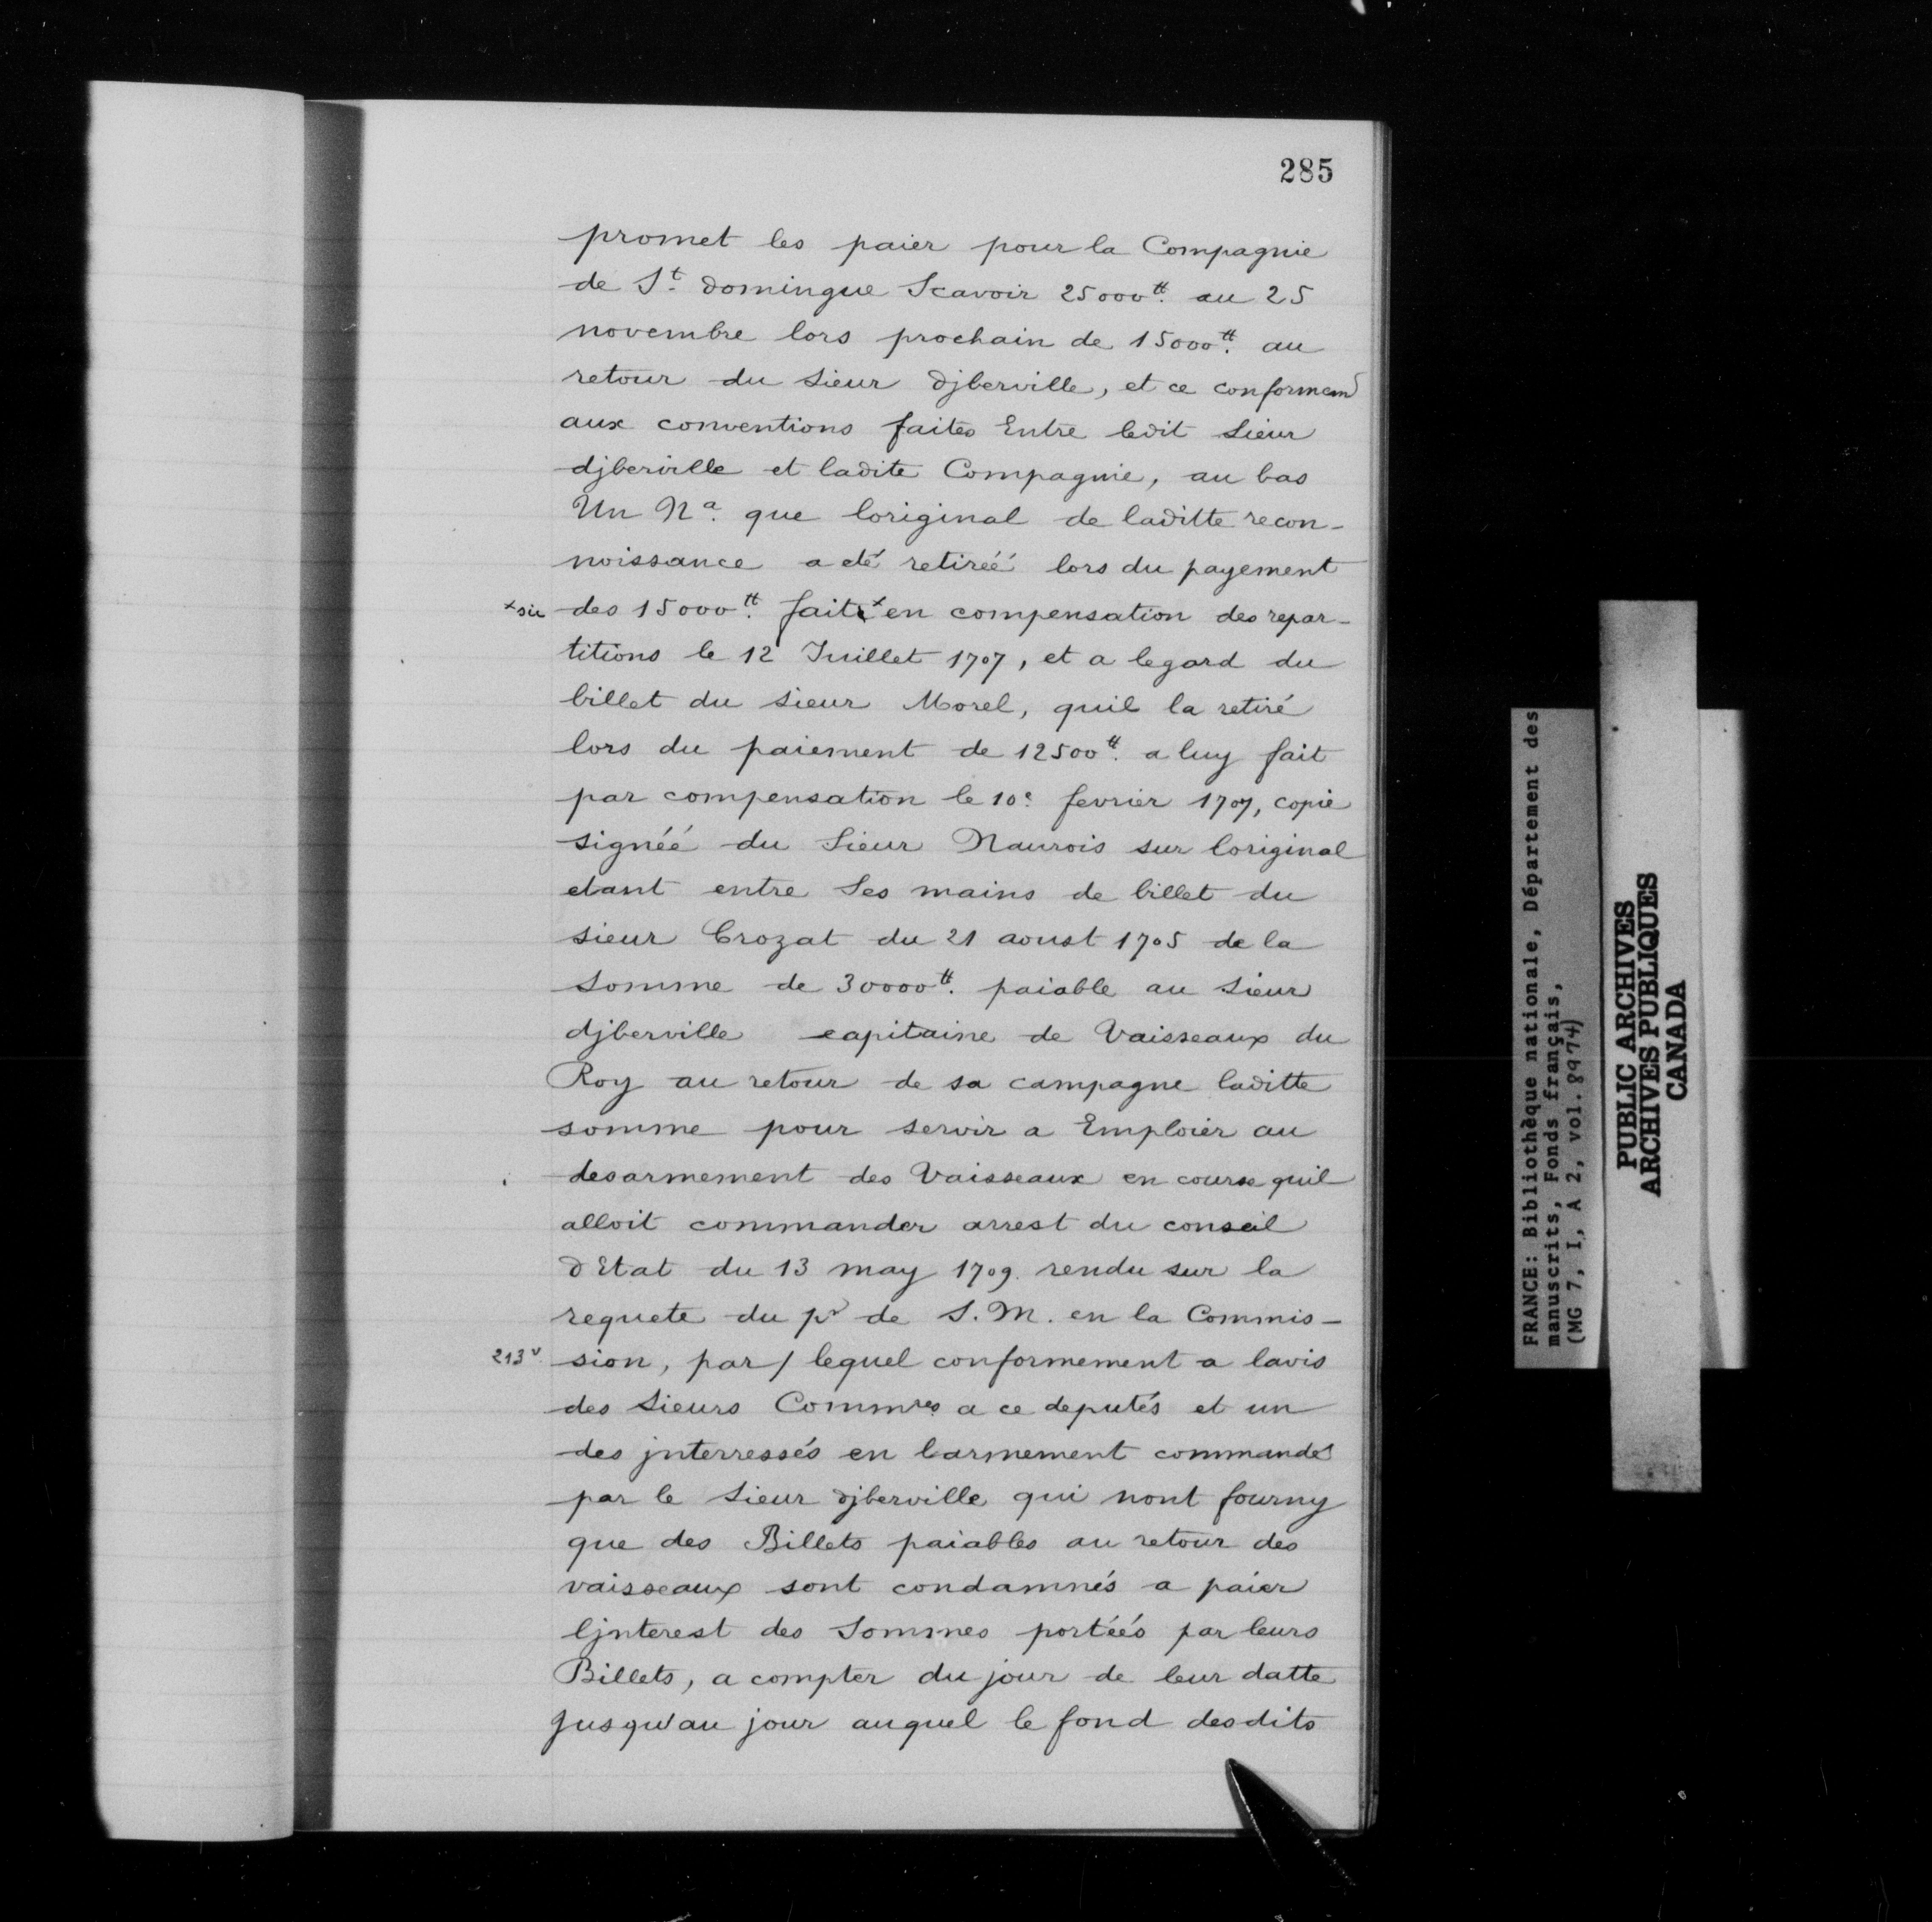 285
promet les paier pour la Compagnie
de St. domingue Scavoir 25000tt. au 25
novembre lors prochain de 15000tt. au
retour du sieur djberville, et ce conformemt
aux conventions faites Entre ledit sieur
djberville et ladite Compagnie, au bas
Un Na. que loriginal de laditte recon-
noissance a eté retiréé lors du payement
x sic des 15000tt. faits x en compensation des repar-
titions le 12 Juillet 1707, et a legard du
billet du sieur Morel, quil la retiré
lors du paiement de 12500tt. a luy fait
par compensation le 10e fevrier 1707, copie
signéé du Sieur Naurois sur loriginal
etant entre Ses mains de billet du
sieur Crozat du 21 aoust 1705 de la
somme de 30000tt. paiable au sieur
djberville capitaine de Vaisseaux du
Roy au retour de sa campagne laditte
somme pour servir a Emploier au
desarmement des Vaisseaux en course quil
alloit commander arrest du conseil
dEtat du 13 may 1709. rendu sur la
requete du pr de S. M. en la Commis-
213v. sion, par / lequel conformement a lavis
des sieurs Commres a ce deputés et un
des jnterressés en larmement commandé
par le sieur djberville qui nont fourny
que des Billets paiables au retour des
vaisseaux sont condamnés a paier
ljnterest des Sommes portéés par leurs
Billets, a compter du jour de leur datte
jusqu'au jour auquel le fond desdits
FRANCE: Bibliothèque nationale, Département des
manuscrits, Fonds français,
(MG 7, I, A 2, vol. 8974)
PUBLIC ARCHIVES
ARCHIVES PUBLIQUES
CANADA